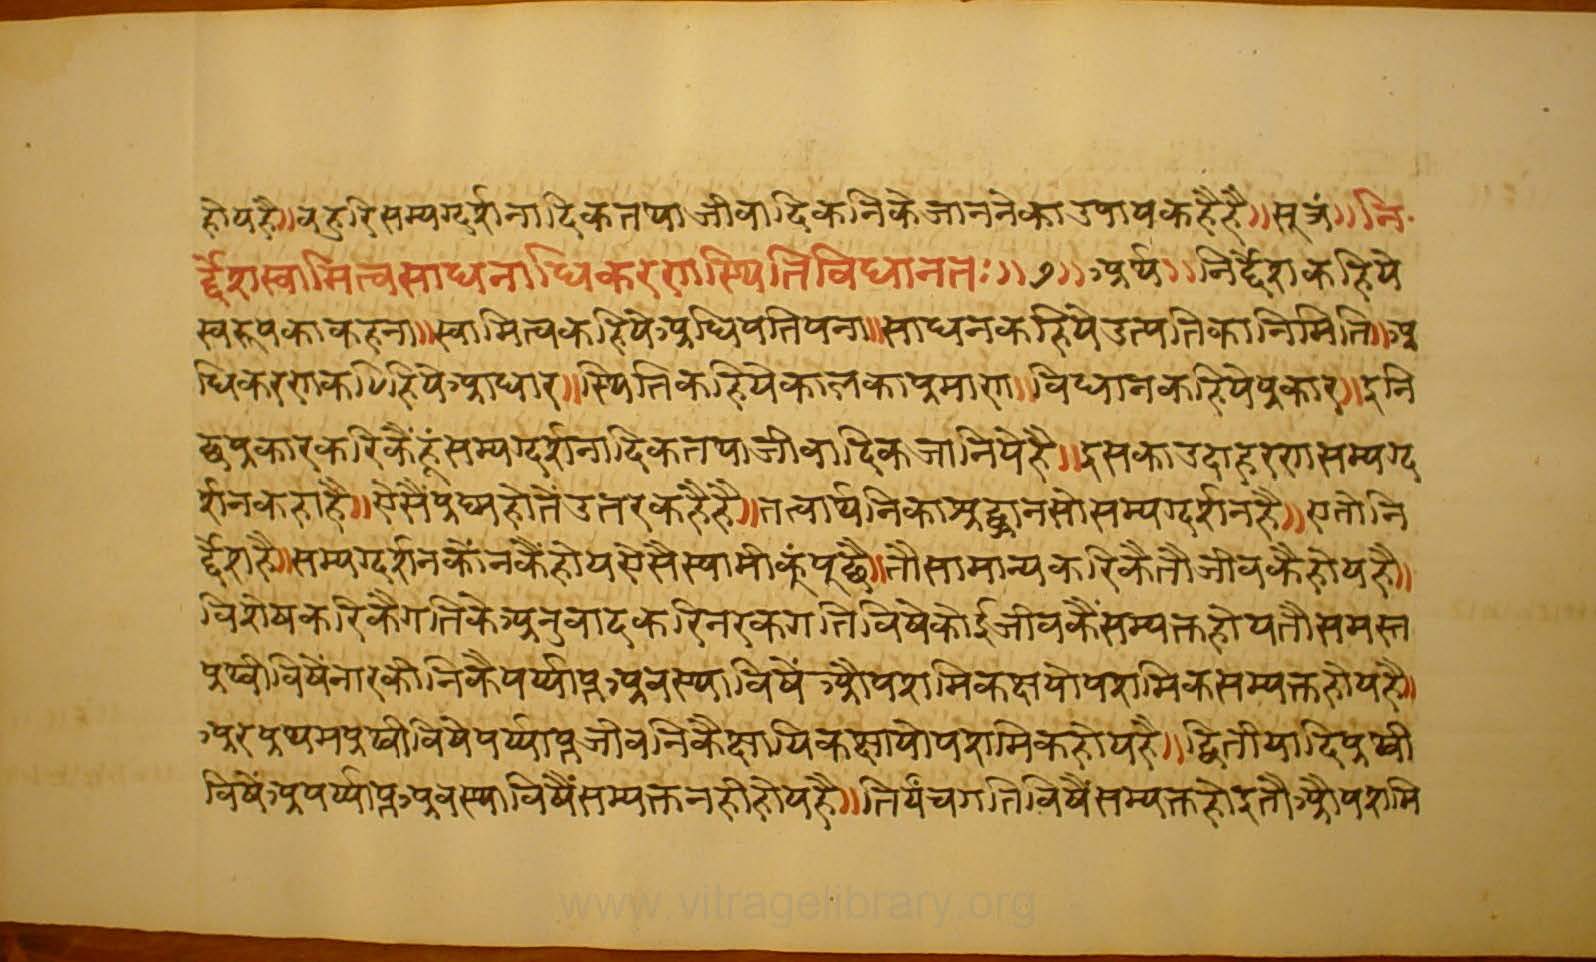 होयहै॥वहुरिसम्यग्दर्शनादिकतथाजीवादिकनिकेजाननेकाउपायकहैहै॥सूत्रं॥नि
र्द्देशस्वामित्वसाधनाधिकरणस्थितिविधानतः॥७॥अर्थ॥निर्द्देशकहिये
स्वरूपकाकहना॥स्वामित्वकहियेअधिपतिपना॥साधनकहियेउत्पतिकानिमिति॥अ
धिकरणकहियेआधार॥स्थितिकहियेकालकाप्रमाण॥विधानकहियेप्रकार॥इनि
छप्रकारकरिकैंहूंसम्यग्दर्शनादिकतथाजीवादिकजानियेहै॥इसकाउदाहरणसम्यग्द
र्शनकहाहै॥ऐसैंप्रश्नहोतेंउतरकहैहै॥तत्वार्थनिकाश्रद्धानसोसम्यग्दर्शनहै॥एतोनि
र्द्देशहै॥सम्यग्दर्शनकौंनकैंहोयऐसैस्वामीकूंपूछै॥तौसामान्यकरिकैतौजीवकैहोयहै॥
विशेषकरिकैगतिकेअनुवादकरिनरकगतिविषेकोईजीवकैंसम्यक्तहोयतौसमस्त
पृथ्वीविषेंनारकीनिकैपर्य्याप्तअवस्थाविषें औपशमिकक्षयोपशमिकसम्यक्तहोयहै॥
अरप्रथमपृथ्वीविषेपर्य्याप्तजीवनिकैक्षायिकक्षायोपशमिकहोयहै॥द्वितीयादिपृथ्वी
विषेंअपर्य्याप्तअवस्थाविषैंसम्यक्तनहीहोयहै॥तिर्यंचगतिविषैंसम्यक्तहोइतौऔपशमि
www.vitragelibrary.org